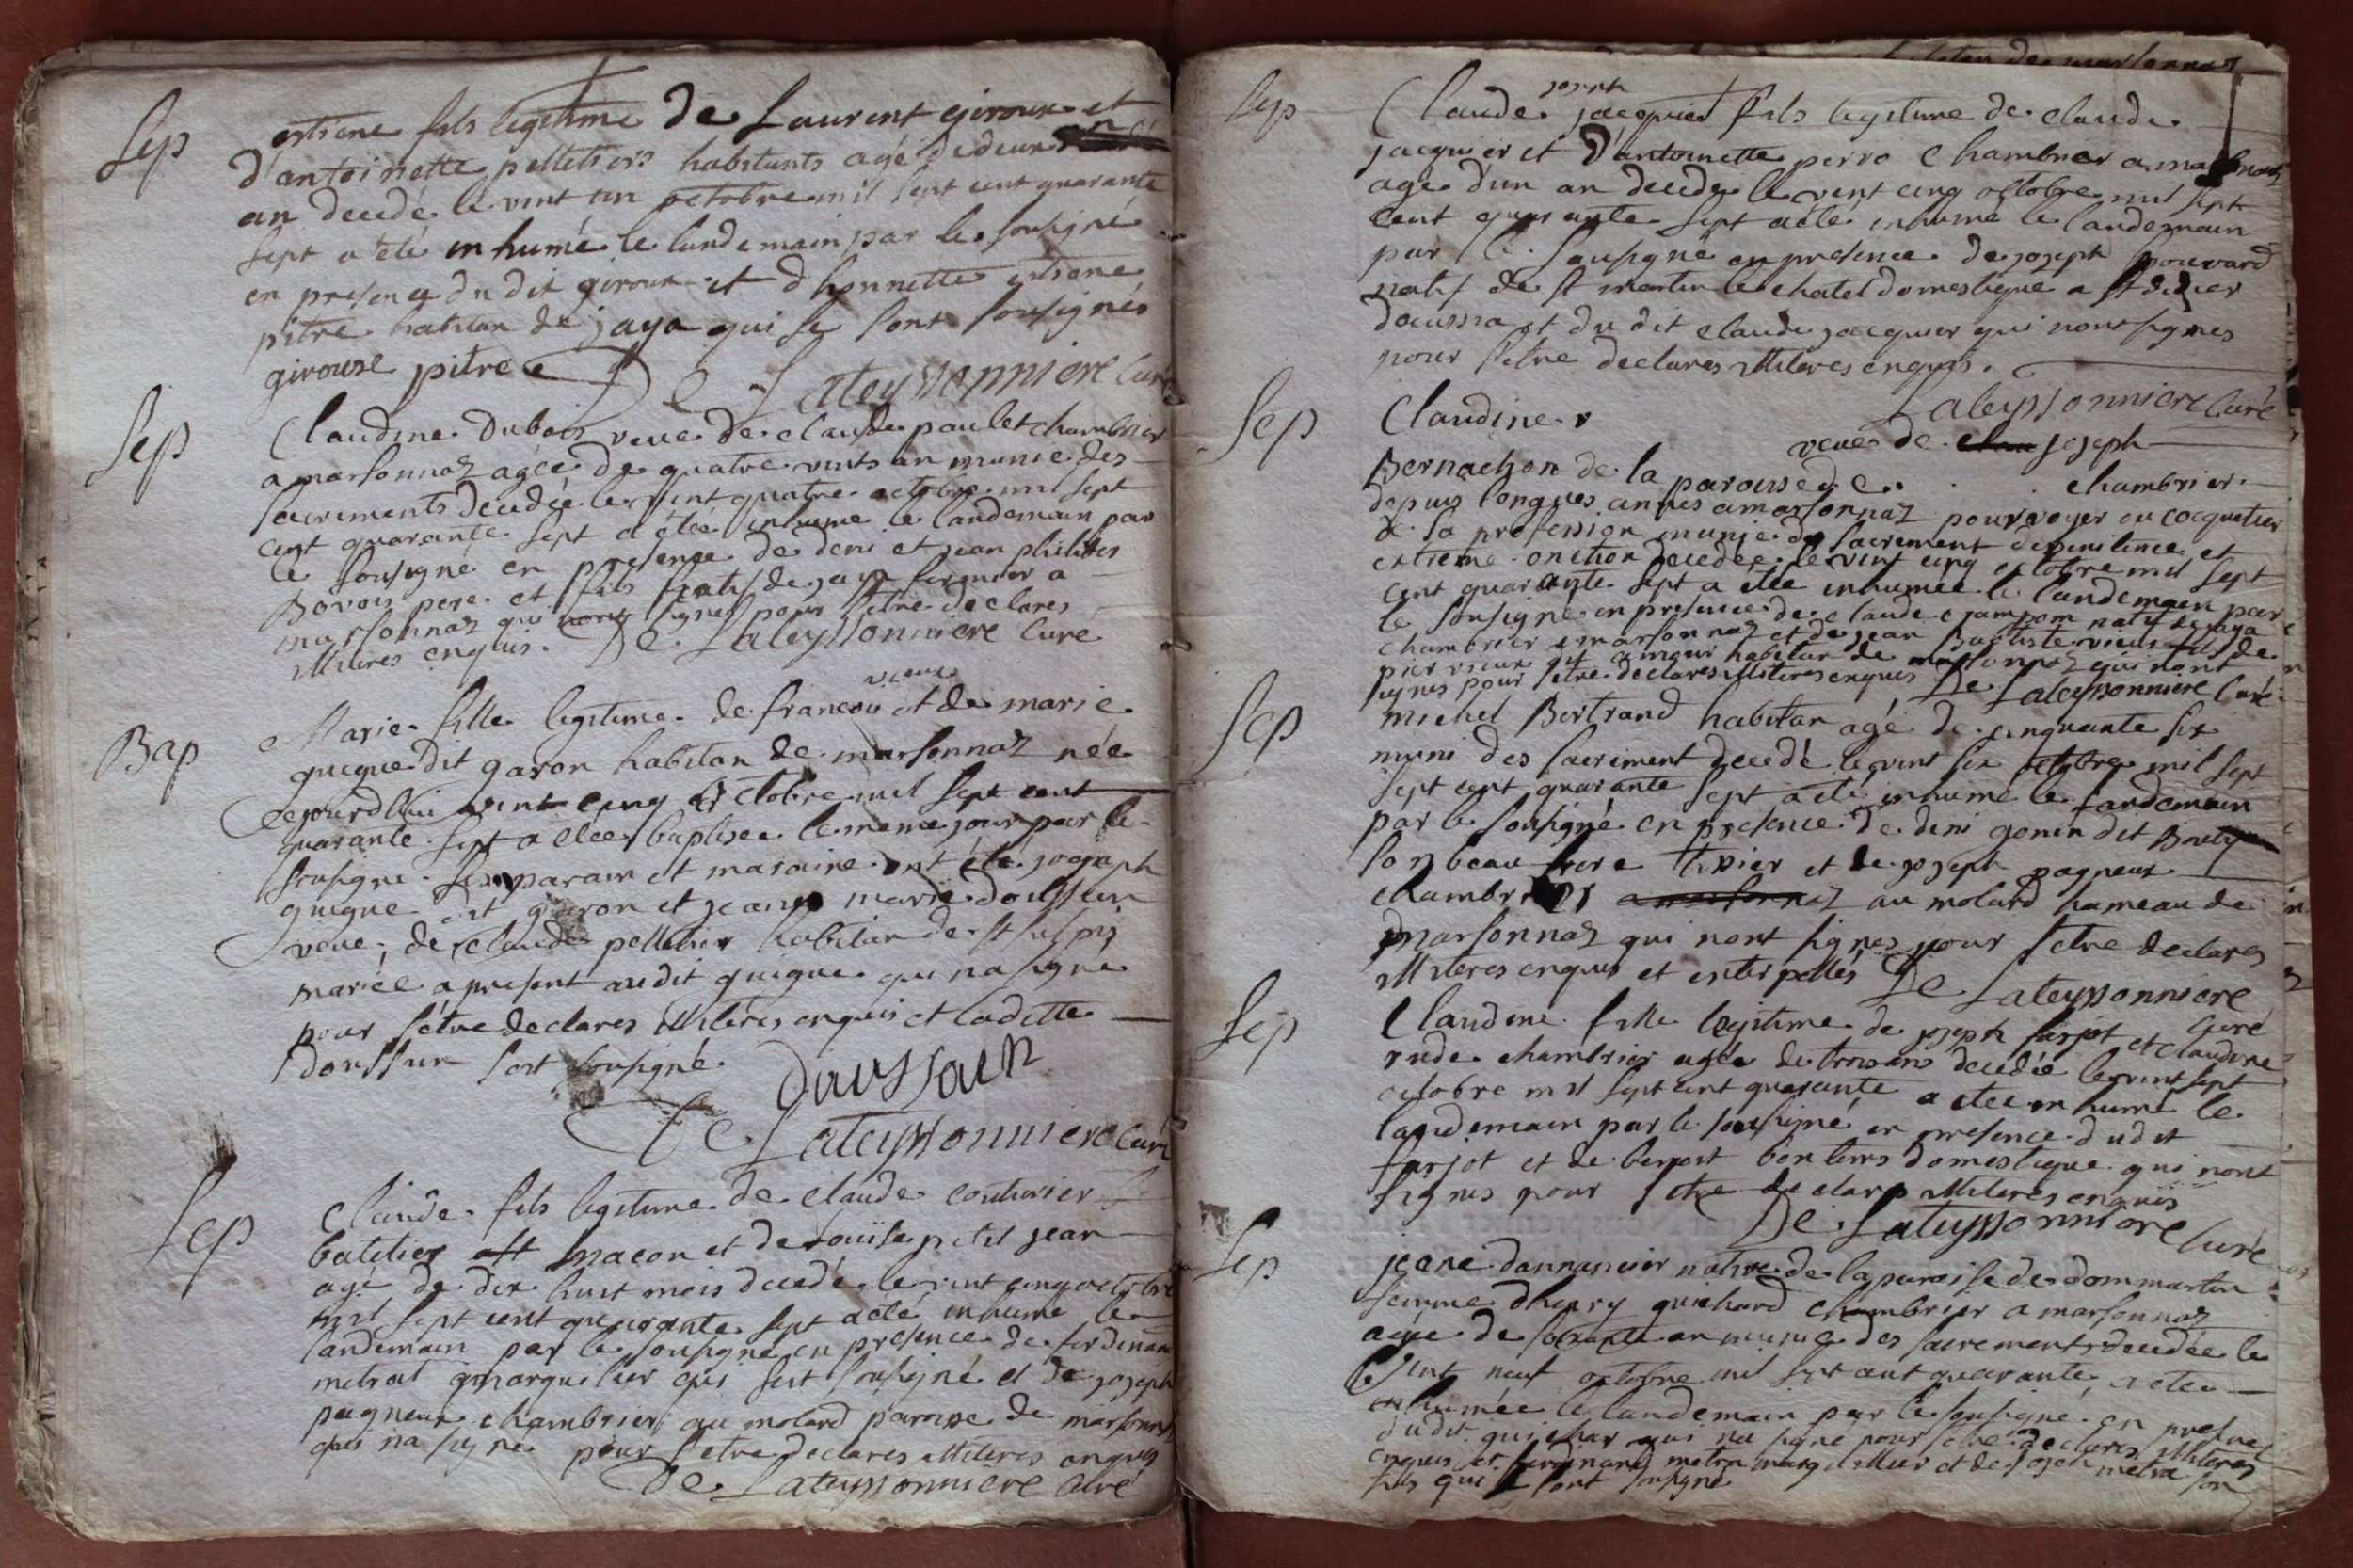 Sep
estiene fils legitime de Laurent giroux et
d'antoinette pelletier habitants agé de deux
an decedé le vint un octobre mil sept cent quarante
sept a eté inhumé le landemain par le sousigné
en presence du dit giroux et d honnette estiene
pitre habitan de jaya qui se sont sousignés
girouse pitre De Lateyssonniere Curé
Sep
Claudine Dubois veue de claude paulet chambrier
a marsonnaz agée de quatre vints an munie des
sacrements decedée le vint quatre octobre mil sept
cent quarante sept a étée inhume le landemain par
le sousigné en presence de deni et jean
Bovois pere et fils natif de jaya fermier a
marsonnaz qui nont signes pour setre declares
illiteres enquis. De Lateyssonniere Curé
vieux
Bap
Marie fille legitime de francois et de marie
guigue dit garon habitan de marsonnaz née
cejourdhui vint cinq octobre mil sept cent
quarante sept a étée baptisée le meme jour par le
sousigné. Ses parain et maraine ont été joseph
guigue dit garon et jeane marie doussan
veue de claude pelletier habitan de st sulpis
mariée a present audit guigue qui na signé
pour setre declares illiteres enquis et ladette
doussan sest sousigné.
Doussain
De Lateyssonniere Curé
Sep
Claude fils legitime de claude couturier
batelier a macon et de Louise petit jean
agé de dix huit mois decedé le vint cinq octobre
mil sept cent quarante sept a été inhume le
landemain par le sousigné en presence de ferdinan
metrat marguilier qui sest sousigné et de joseph
pagneux chambrier au molard paroisse de marsonnaz
qui na signé pour setre declares illiteres enquis
De Lateyssonniere Curé
habitan de marsonnaz
joseph
Sep
Claude jacquier fils legitime de claude
jacquier et d'antoinette perro chambrier a marsonnaz
agé d'un an decede le vint cinq octobre mil sept
cent quarante sept a été inhumé le landemain
par le sousigné en presence de joseph pouvard
natif de st martin le chatel domestique a st didier
daussia et du dit claude jacquier qui nont signes
pour setre declares illiteres enquis.
Lateyssonniere Curé
Sep
Claudine
veue de joseph
Bernachon de la paroisse de chambrier
depuis longues annes a marsonnaz pourvoyer ou cocquetier
de sa profession munie du sacrement de penitence et
extreme onction decedée le vint cinq octobre mil sept
cent quarante sept a étée inhumée le landemain par
le sousigné en presence de claude natif de jaya
chambrier a marsonnaz et de jean Baptiste vieux fils de
pier vieux dit habitan de marsonnaz qui nont
signes pour setre declares illiteres enquis De Lateyssonniere Curé
Sep
michel Bertrand habitan agé de cinquante six
muni des sacriment decedé le vint six octobre mil sept
sept cent quarante sept a été inhume le landemain
par le sousigné en presence de deni gonin dit
son beau frere tixier et de joseph pagneux
chambriers a marsonnaz au molard hameau de
marsonnaz qui nont signes pour setre declares
illiteres enquis et interpellés De Lateyssonniere
Curé
Sep
Claudine fille legitime de joseph farjot et claudine
rude chambrier agée de trois ans decedée le vint sept
octobre mil sept cent quarante a étée inhumé le
landemain par le sousigné en presence dudit
farjot et de benoit domestique qui nont
signes pour setre declares illiteres enquis
De Lateyssonniere Curé
Sep
jeane dannancier native de la paroisse de dommartin
femme dhenry guichard chambrier a marsonnaz
agée de soixante an munie des sacrements decedée le
vint neuf octobre mil sept cent quarante a étée
inhumée le landemain par le sousigné en presence
dudit guichar qui na signé pour setre declares illiteres
enquis et ferdinand metra marguillier et de joseph metra son
fils qui se sont sousigné